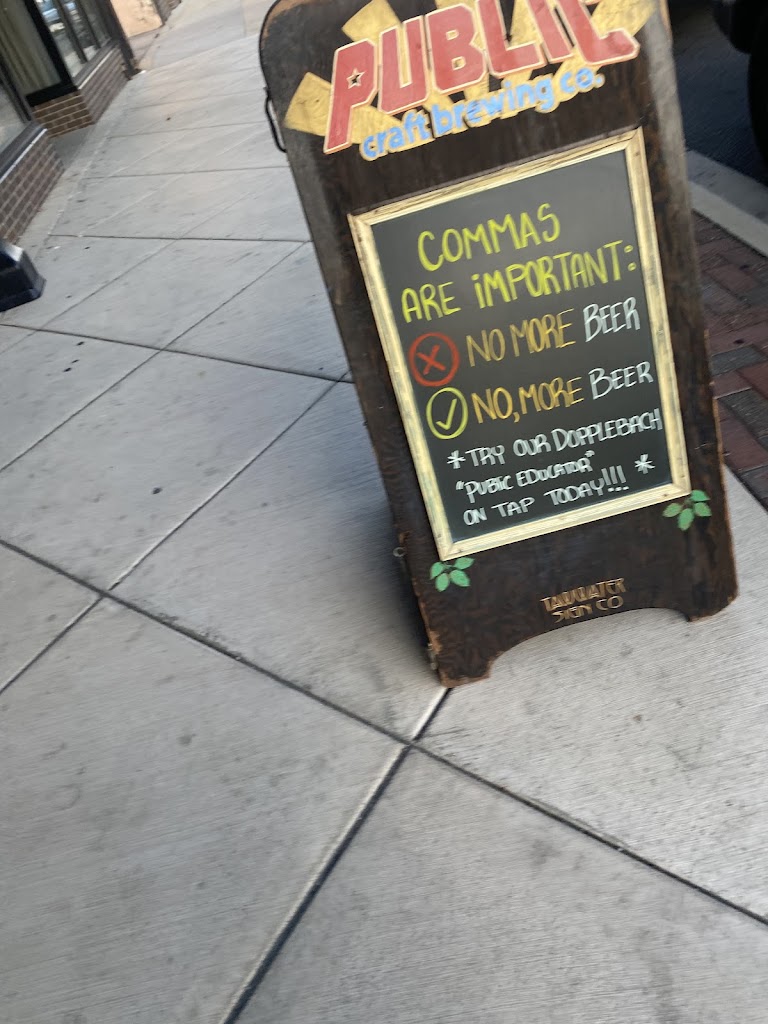 PUBLIC
craft brewing co.
COMMAS
ARE iMPORTANT:
NO MORE BEER
NO, MORE BEER
*TRY OUR DOPPLEBACH
"PUBLIC EDUCATOR"
ON TAP TODAY!!! *
TAILWATER
SIGN CO